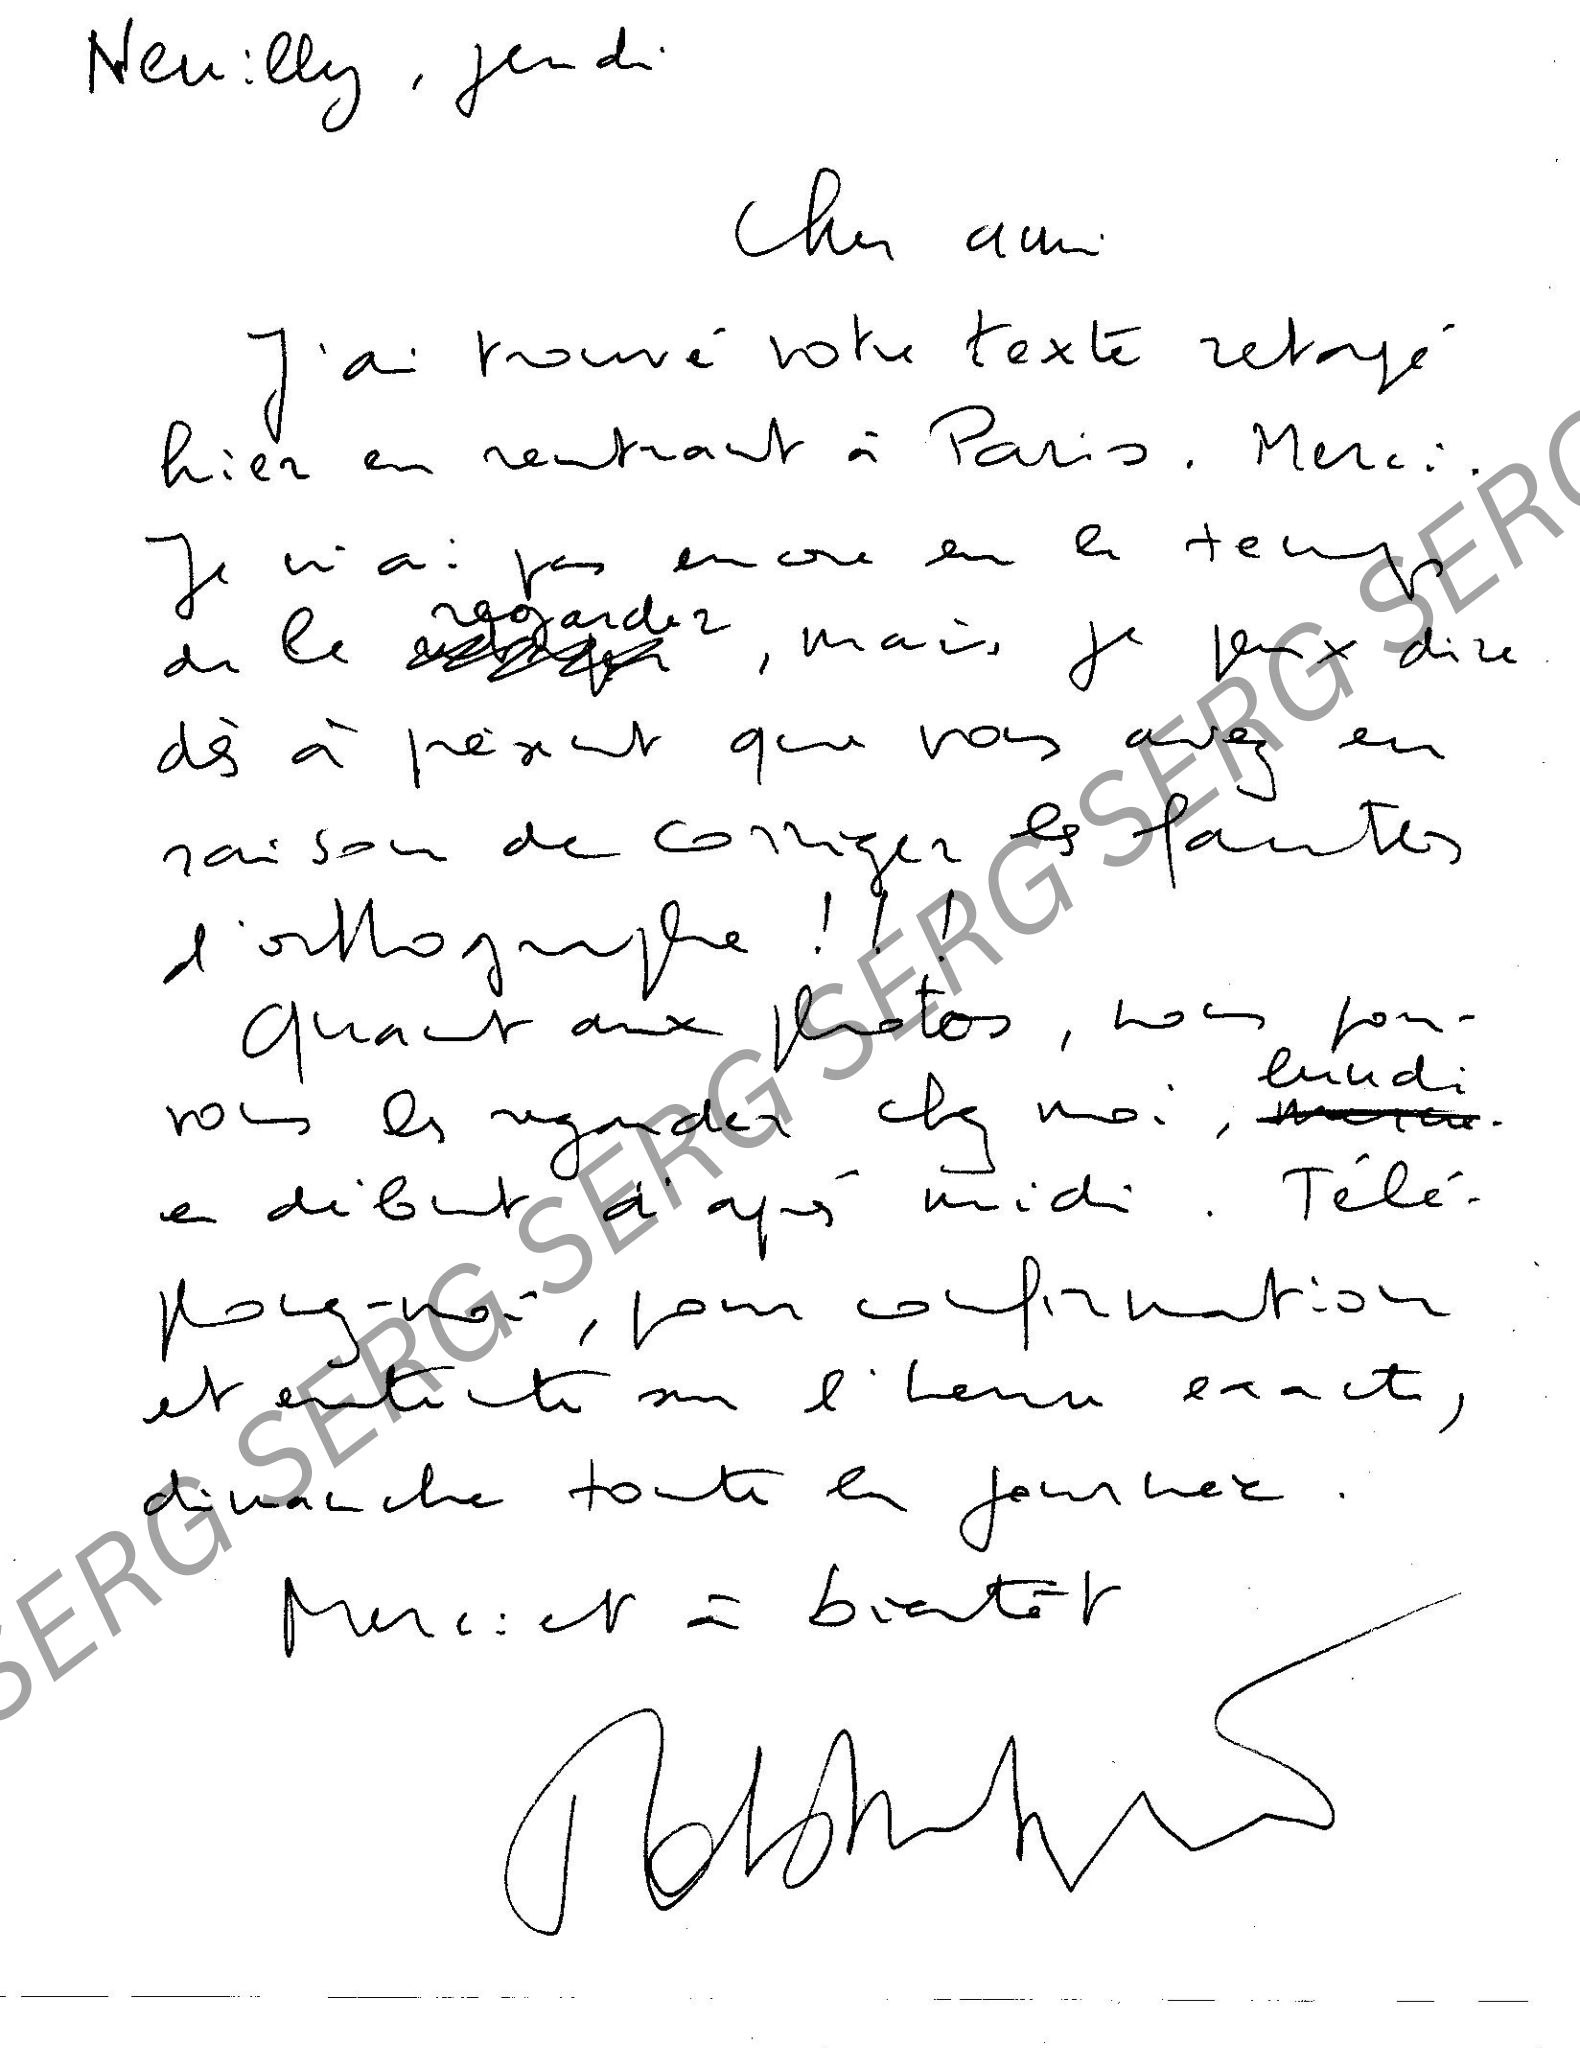 Neuilly, jeudi
Cher ami
J'ai trouvé votre texte retapé
hier en rentrant à Paris. Merci.
Je n'ai pas encore eu le temps
de le regarder, mais je peux dire
dès à présent que vous avez eu
raison de corriger les fautes
d'orthographe !!!
Quant aux photos, nous pou-
vons les regarder chez moi, lundi
en début d'après midi. Télé-
phonez-moi, pour confirmation
et entente sur l'heure exacte,
dimanche toute la journée.
Merci et à bientôt
SERG SERG SERG SERG SERG SERG SERG